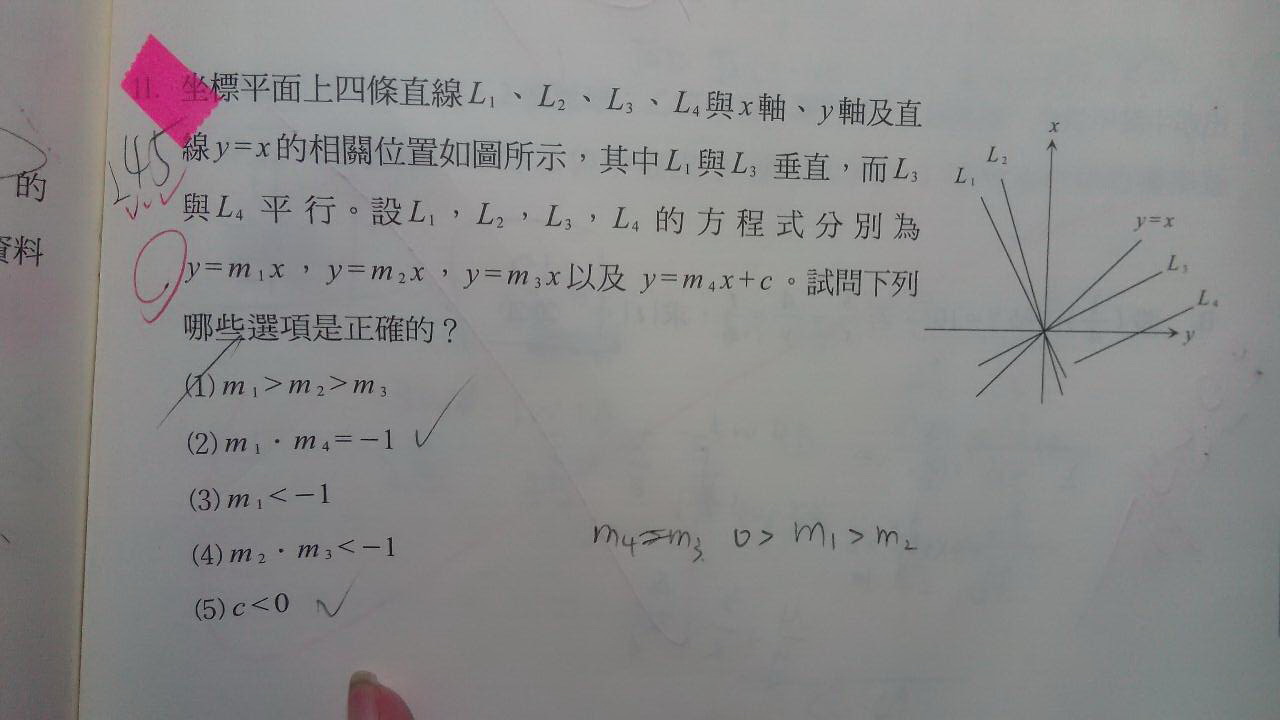 11. 坐標平面上四條直線L₁、L₂、L₃、L₄與x軸、y軸及直
線y=x的相關位置如圖所示，其中L₁與L₃垂直，而L₃
與L₄平行。設L₁，L₂，L₃，L₄的方程式分別為
y=m₁x，y=m₂x，y=m₃x以及 y=m₄x+c。試問下列
哪些選項是正確的？
(1) m₁>m₂>m₃
(2) m₁．m₄=−1
(3) m₁<−1
(4) m₂．m₃<−1
(5) c<0
x
L₂
L₁
y=x
L₃
L₄
y
m₄=m₃ 0> m₁>m₂
145
的
資料